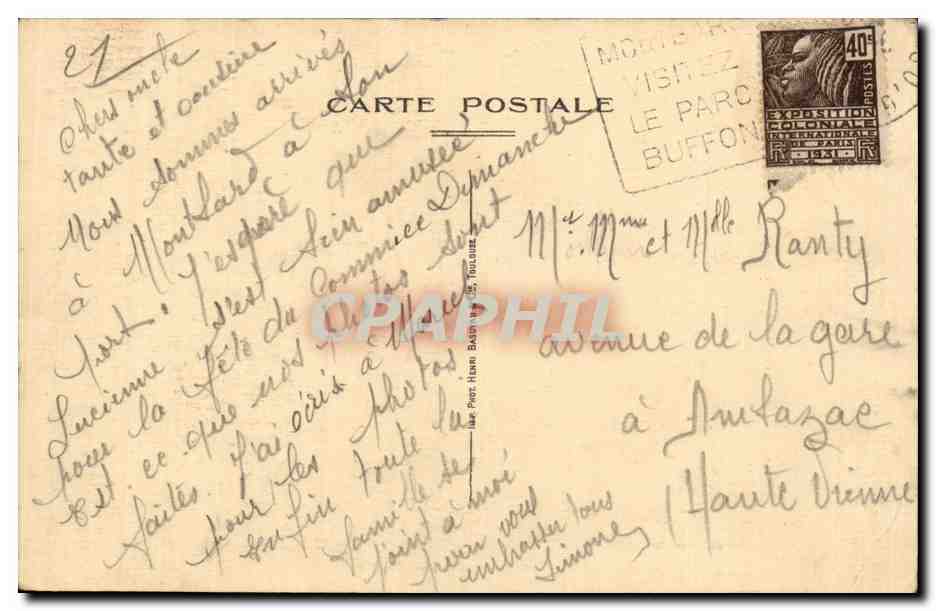 21
Chers oncle
tante et cousine
Nous sommes arrivés
à Montbard à bon
port. J'espère que
Lucienne s'est bien amusée
pour la fête du Commice Dimanche
Est ce que nos photos sont
faites. J'ai écris à Marcel
pour les photos
enfin toute la
famille se
joint à moi
pour vous
embrasser tous
Simone
CARTE POSTALE
IMP. PHOT. HENRI BASUYAU & Cie, TOULOUSE
VISITEZ
LE PARC
BUFFON
40c
POSTES
EXPOSITION
COLONIALE
INTERNATIONALE
DE PARIS
RF 1931 RF
Mr. Mme et Mlle Ranty
avenue de la gare
à Ambazac
(Haute Vienne
CPAPHIL